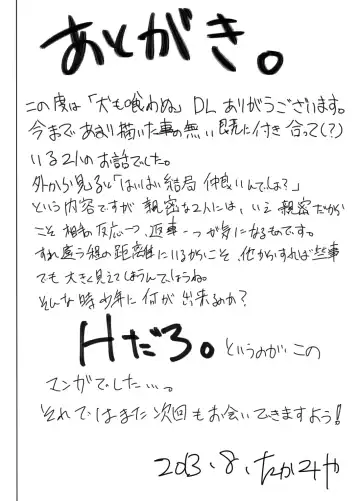 あとがき。
この度は「犬も喰わぬ」DLありがうございます。
今まであまり描いた事の無い既に付き合って(?)
いる2人のお話でした。
外から見ると「はいはい結局仲良いんでしょ?」
という内容ですが親密な2人には、いえ親密だから
こそ相手の反応一つ、返事一つが気になるものです。
すれ違う程の距離にいるからこそ、他からすれば些事
でも大きく見えてしまうんでしょうね。
そんな時少年に何が出来るのか?
Hだろ。というのが、この
マンガでした…。
それではまた次回もお会いできますよう!
2013.8.たかみや